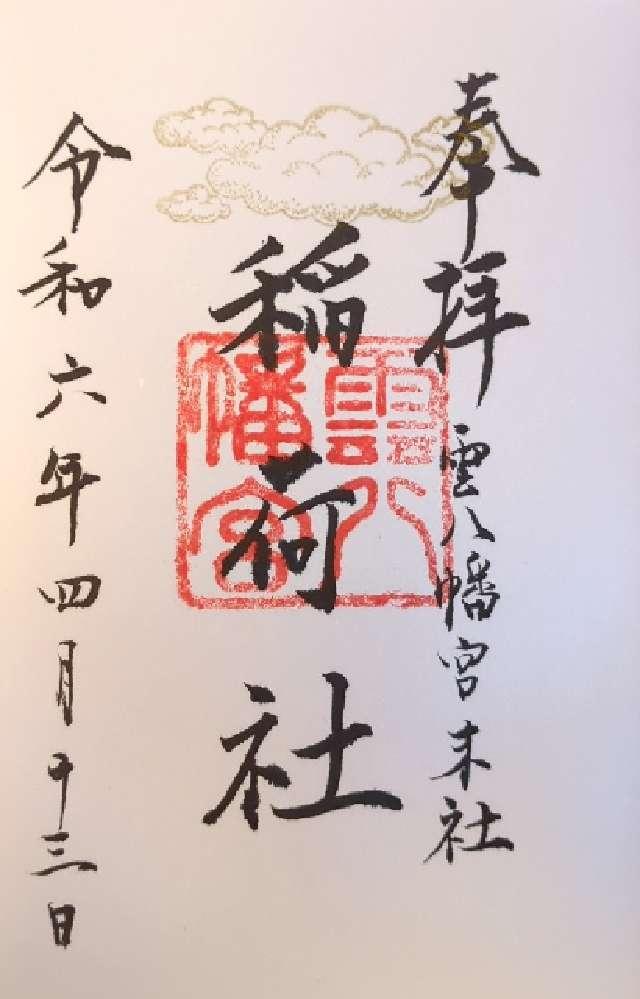 奉拝
雲八幡宮末社
稲荷社
雲八
幡宮
令和六年四月十三日